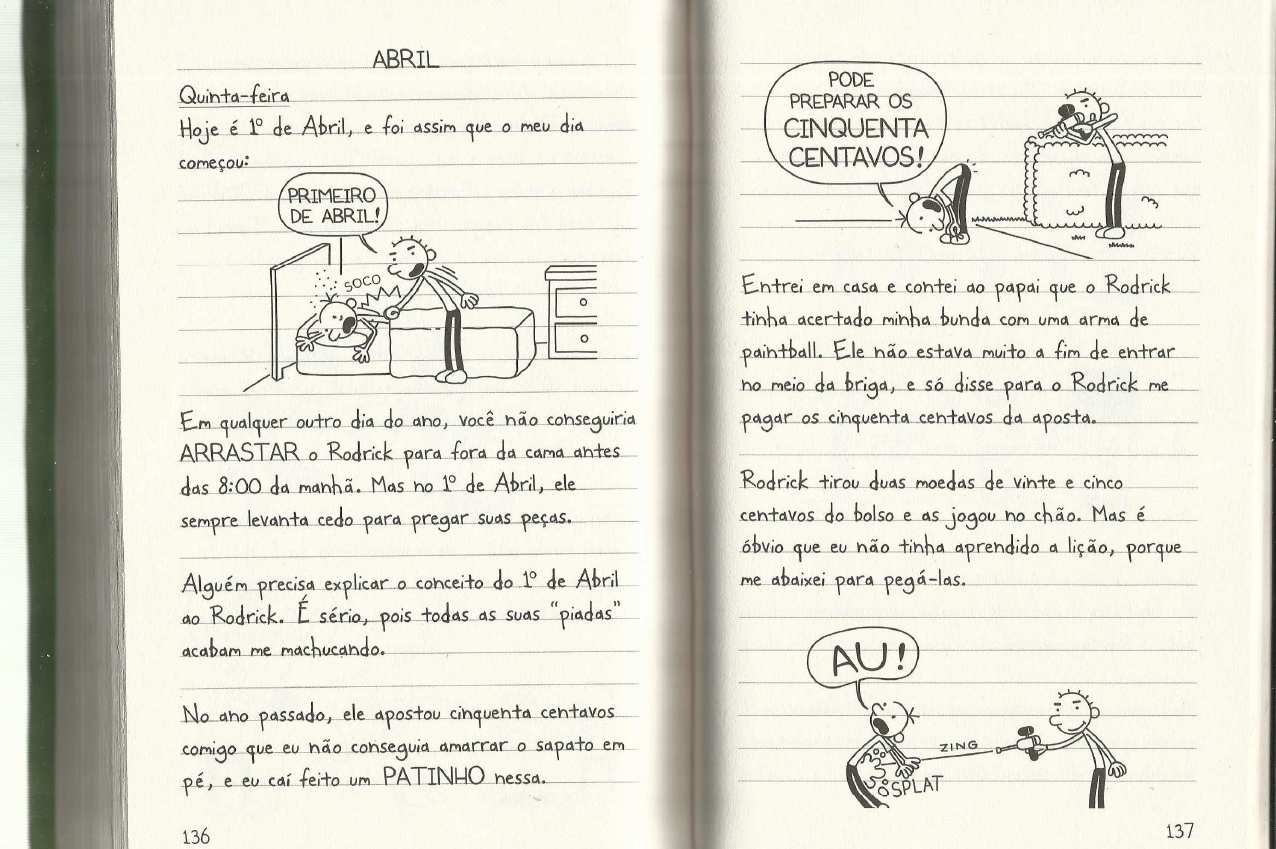 ABRIL
Quinta-feira
Hoje é 1º de Abril, e foi assim que o meu dia
começou:
PRIMEIRO
DE ABRIL!
SOCO
Em qualquer outro dia do ano, você não conseguiria
ARRASTAR o Rodrick para fora da cama antes
das 8:00 da manhã. Mas no 1º de Abril, ele
sempre levanta cedo para pregar suas peças.
Alguém precisa explicar o conceito do 1º de Abril
ao Rodrick. É sério, pois todas as suas "piadas"
acabam me machucando.
No ano passado, ele apostou cinquenta centavos
comigo que eu não conseguia amarrar o sapato em
pé, e eu caí feito um PATINHO nessa.
136
PODE
PREPARAR OS
CINQUENTA
CENTAVOS!
Entrei em casa e contei ao papai que o Rodrick
tinha acertado minha bunda com uma arma de
paintball. Ele não estava muito a fim de entrar
no meio da briga, e só disse para o Rodrick me
pagar os cinquenta centavos da aposta.
Rodrick tirou duas moedas de vinte e cinco
centavos do bolso e as jogou no chão. Mas é
óbvio que eu não tinha aprendido a lição, porque
me abaixei para pegá-las.
AU!
ZING
SPLAT
137